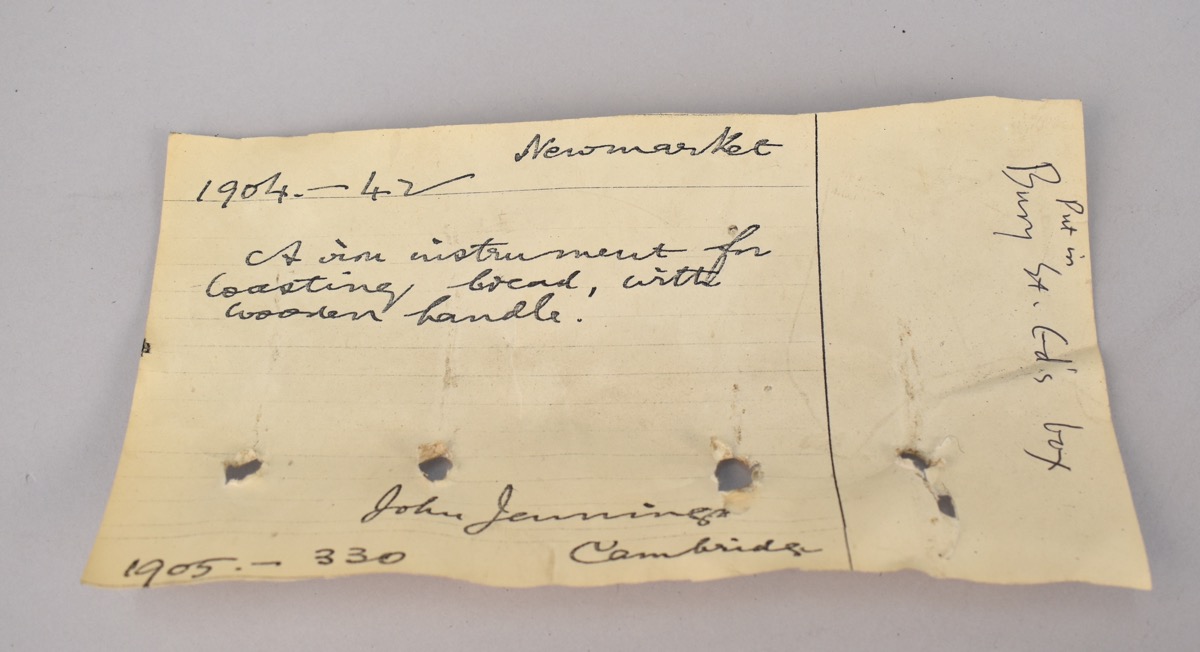 Newmarket
1904.— 42
A iron instrument for
toasting bread, with
wooden handle.
John Jennings
Cambridge
1905.— 330
Put in
Bury St. Ed's box